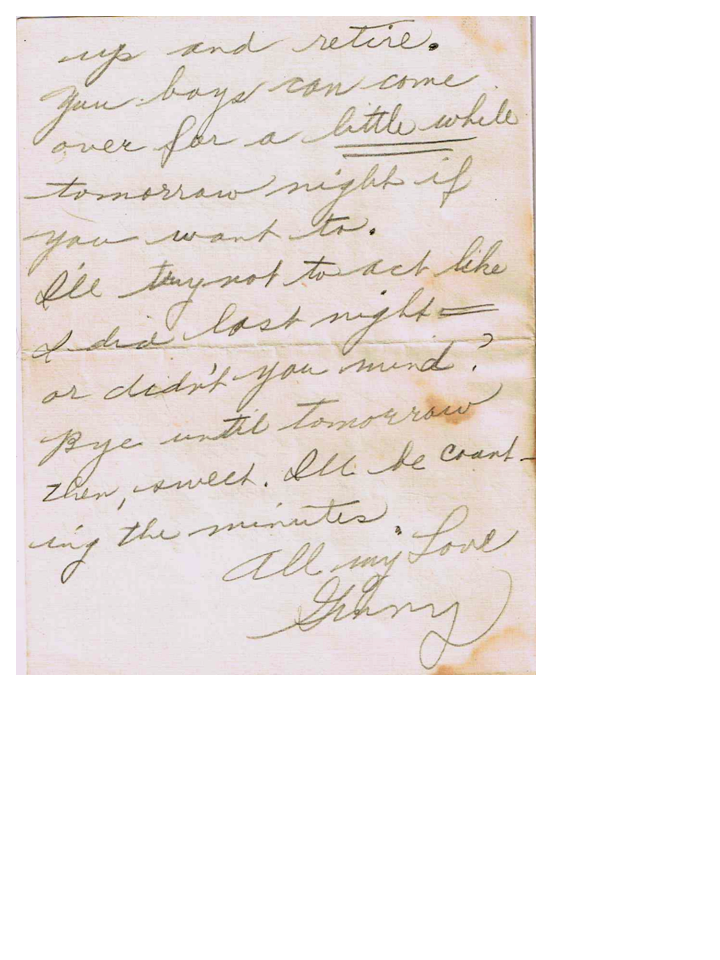 up and retire.
You boys can come
over for a little while
tomorrow night if
you want to.
I'll try not to act like
I did last night =
or didn't you mind?
Bye until tomorrow
then, sweet. I'll be count-
ing the minutes.
All my Love
Ginny